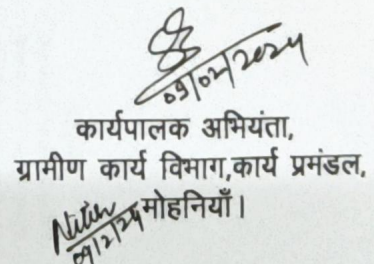 09/02/2024
कार्यपालक अभियंता,
ग्रामीण कार्य विभाग,कार्य प्रमंडल,
मोहनियाँ।
Nitin
09/2/24